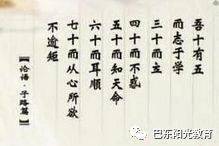 吾十有五
而志于学
三十而立
四十而不惑
五十而知天命
六十而耳顺
七十而从心所欲
不逾矩
【论语·子路篇】
巴东阳光教育